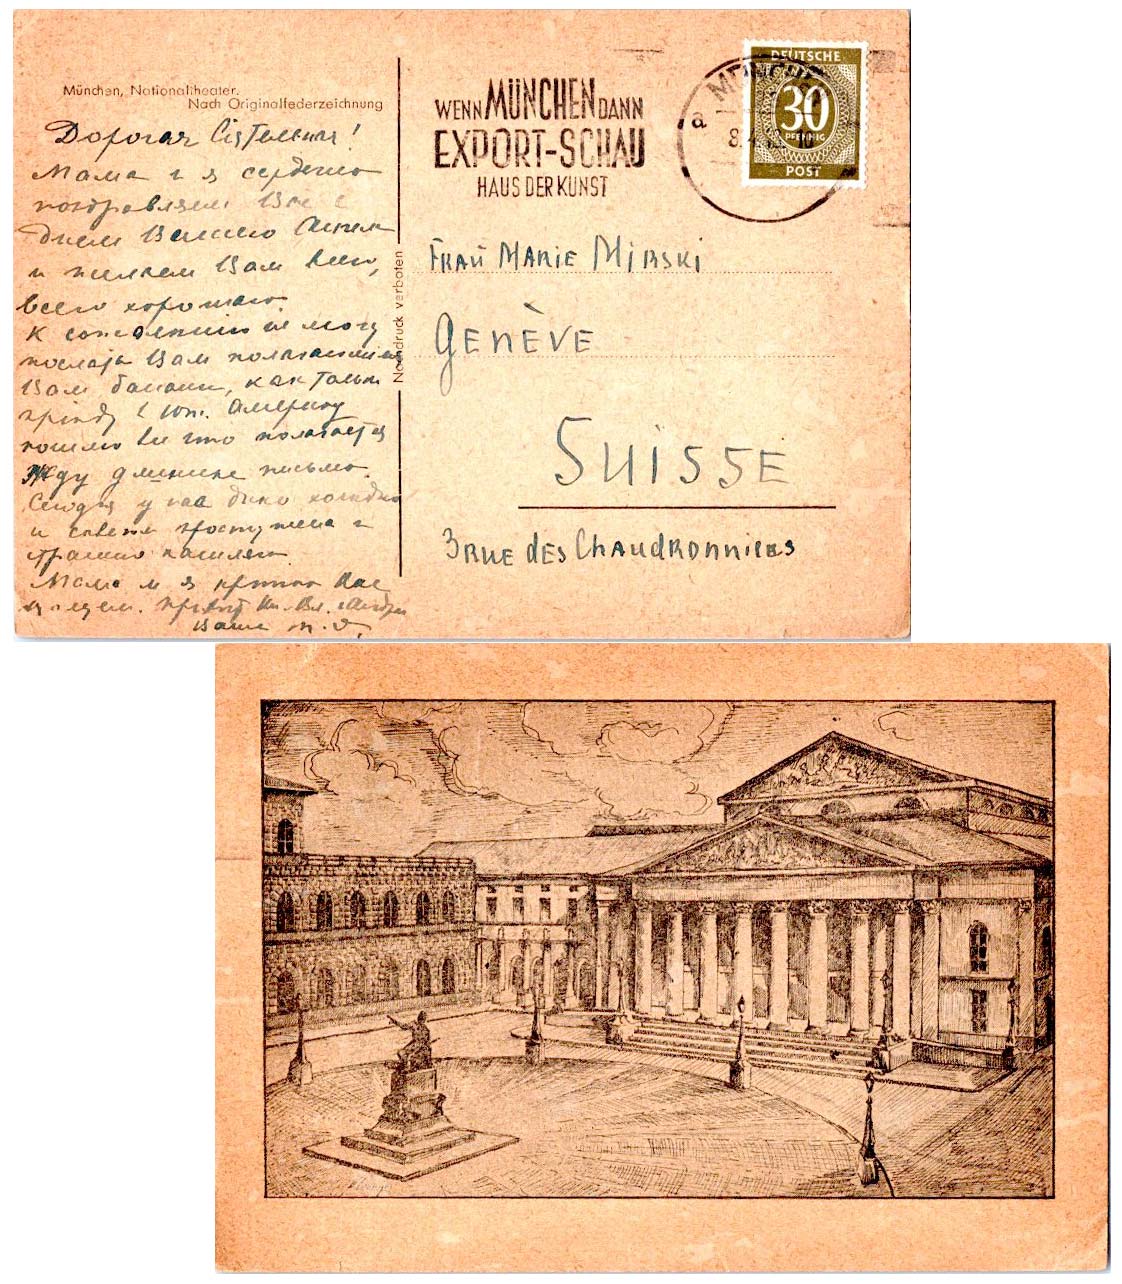 München, Nationaltheater.
Nach Originalfederzeichnung
Дорогая
Мама и я сердечно
поздравляем Вас с
Днем Вашего Ангела
и желаем Вам всего,
всего хорошего.
К сожалению не могу
послать Вам
Вам банани, как только
приеду в Юж. Америку
пошлю
Жду длинное письмо.
Сегодня у нас дико холодно
и я простужена и
страшно кашляю
Мама и я крепко Вас
целуем. Привет
Ваша
Nachdruck verboten
WENN MÜNCHEN DANN
EXPORT-SCHAU
HAUS DER KUNST
a
DEUTSCHE
30
PFENNIG
POST
FRAU MARIE MIRSKI
GENÈVE
SUISSE
3 RUE DES CHAUDRONNIERS